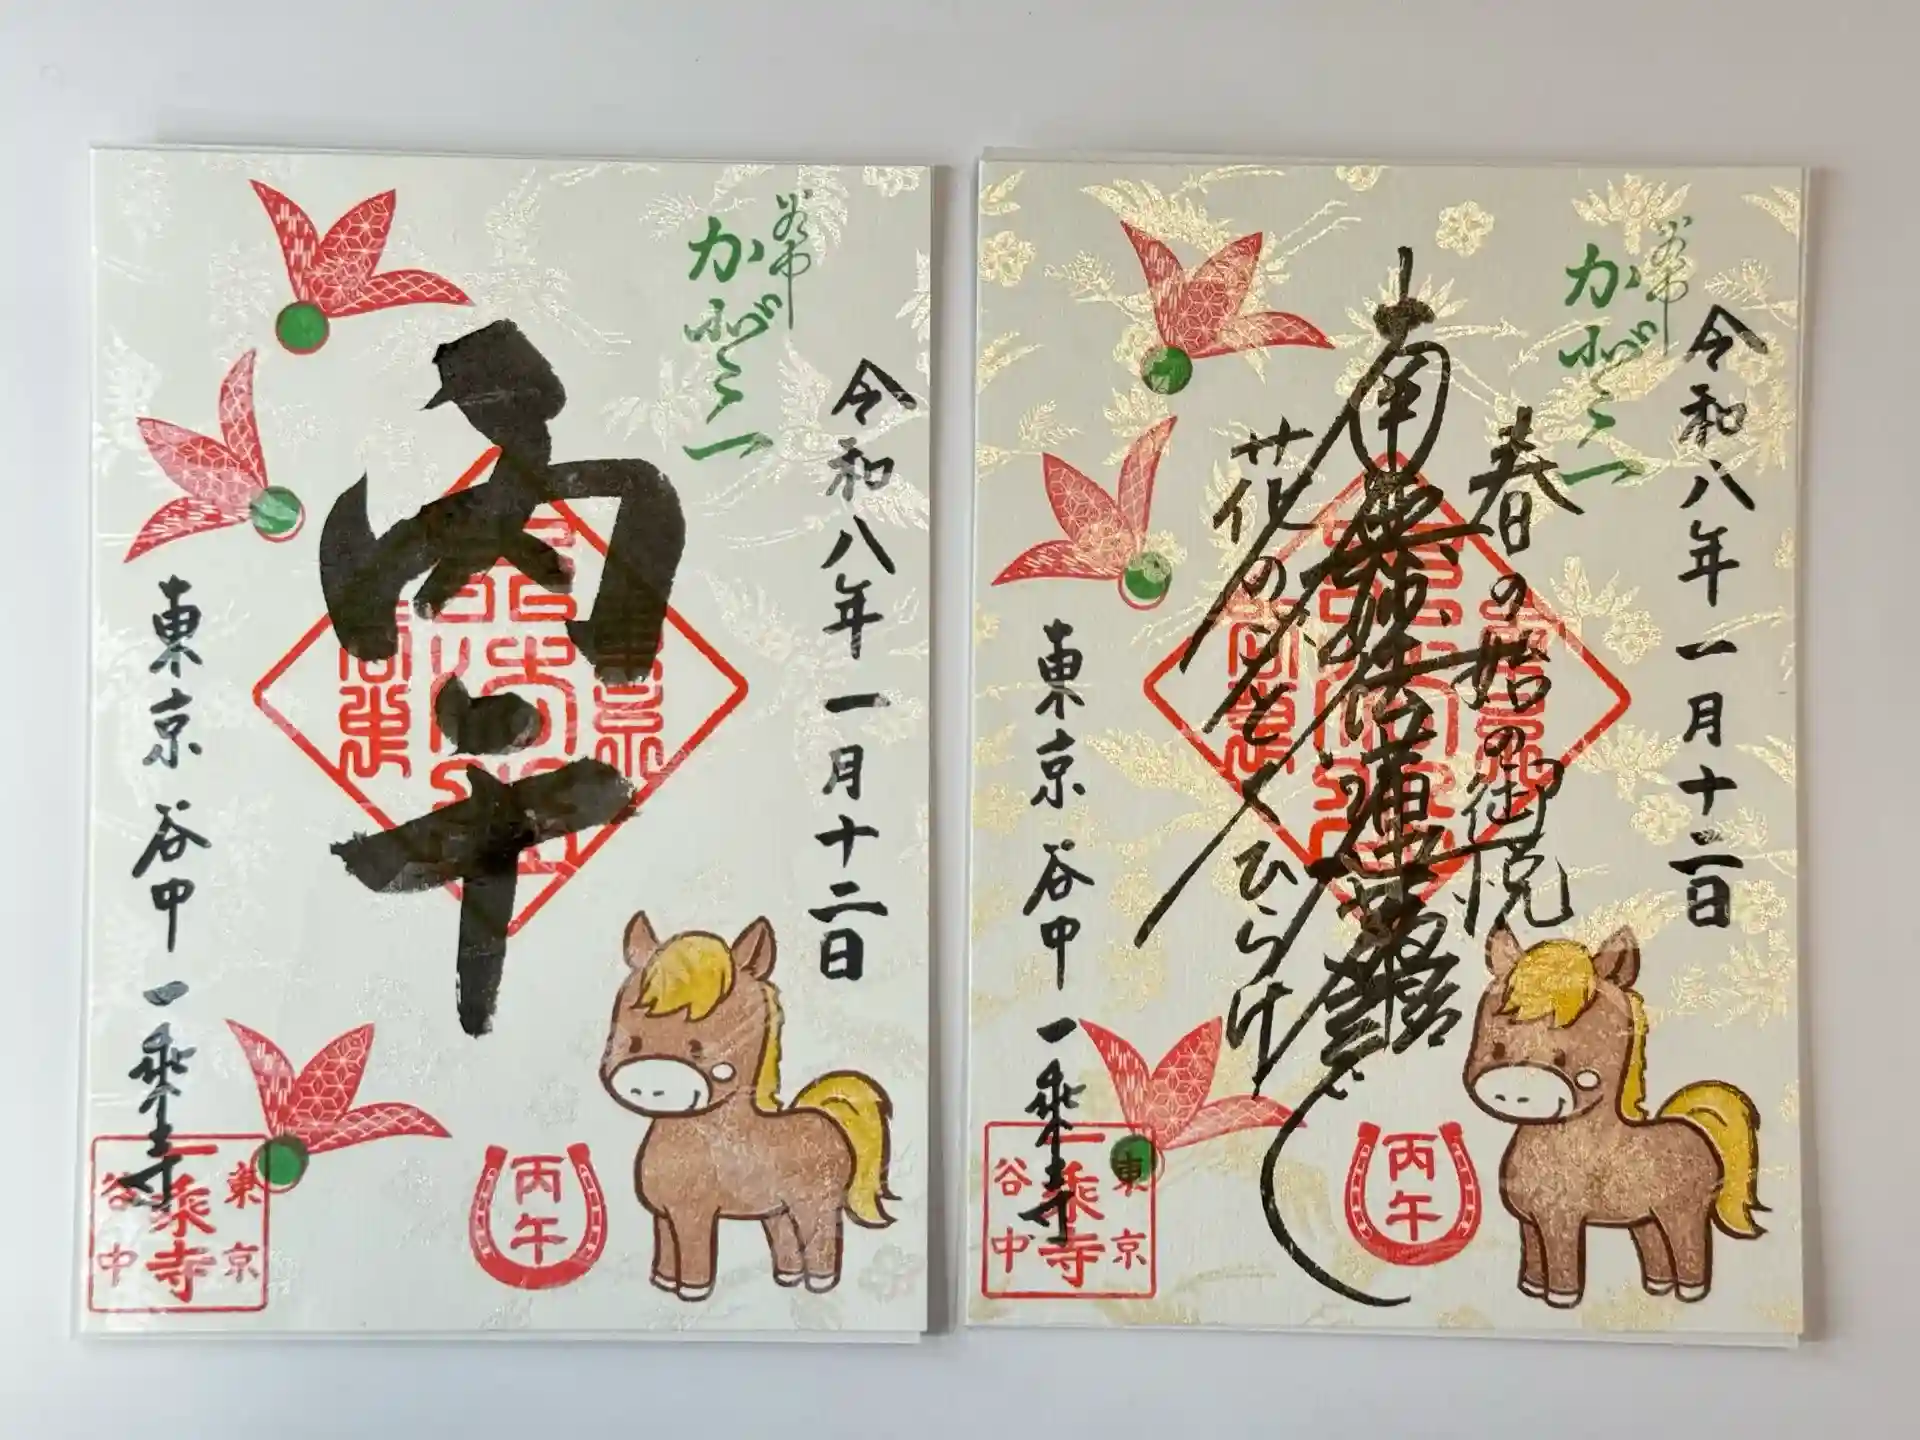 谷中
令和八年一月十二日
丙午
東京 谷中 一乗寺
丙午
東京
一乗寺
谷中
谷中
令和八年一月十二日
春の始の御悦
南無妙法蓮華経
花のごとくひらけ
東京 谷中 一乗寺
丙午
東京
一乗寺
谷中